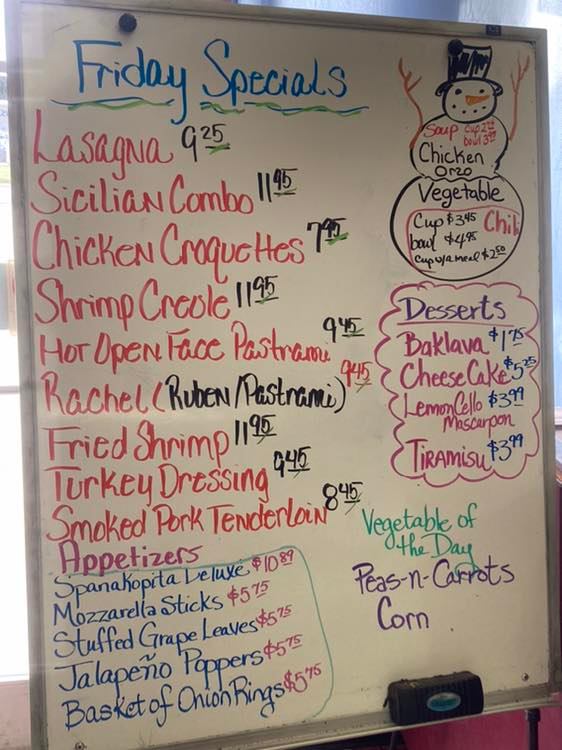 Friday Specials
Lasagna 9 25
Sicilian Combo 11 95
Chicken Croquettes 7 95
Shrimp Creole 11 95
Hot Open Face Pastrami 9 45
Rachel (Ruben/Pastrami) 9 45
Fried Shrimp 11 95
Turkey Dressing 9 45
Smoked Pork Tenderloin 8 45
Appetizers
Spanakopita Deluxe $10 89
Mozzarella Sticks $5 75
Stuffed Grape Leaves $5 75
Jalapeño Poppers $5 75
Basket of Onion Rings $5 75
Soup cup 2
bowl 3
Chicken
Orzo
Vegetable
Cup $3 45 Chili
bowl $4 95
Cup w/a meal $2 50
Desserts
Baklava $1 75
Cheese Cake $5 25
Lemon Cello $3 99
Mascarpon
Tiramisu $3 99
Vegetable of
the Day
Peas-n-Carrots
Corn